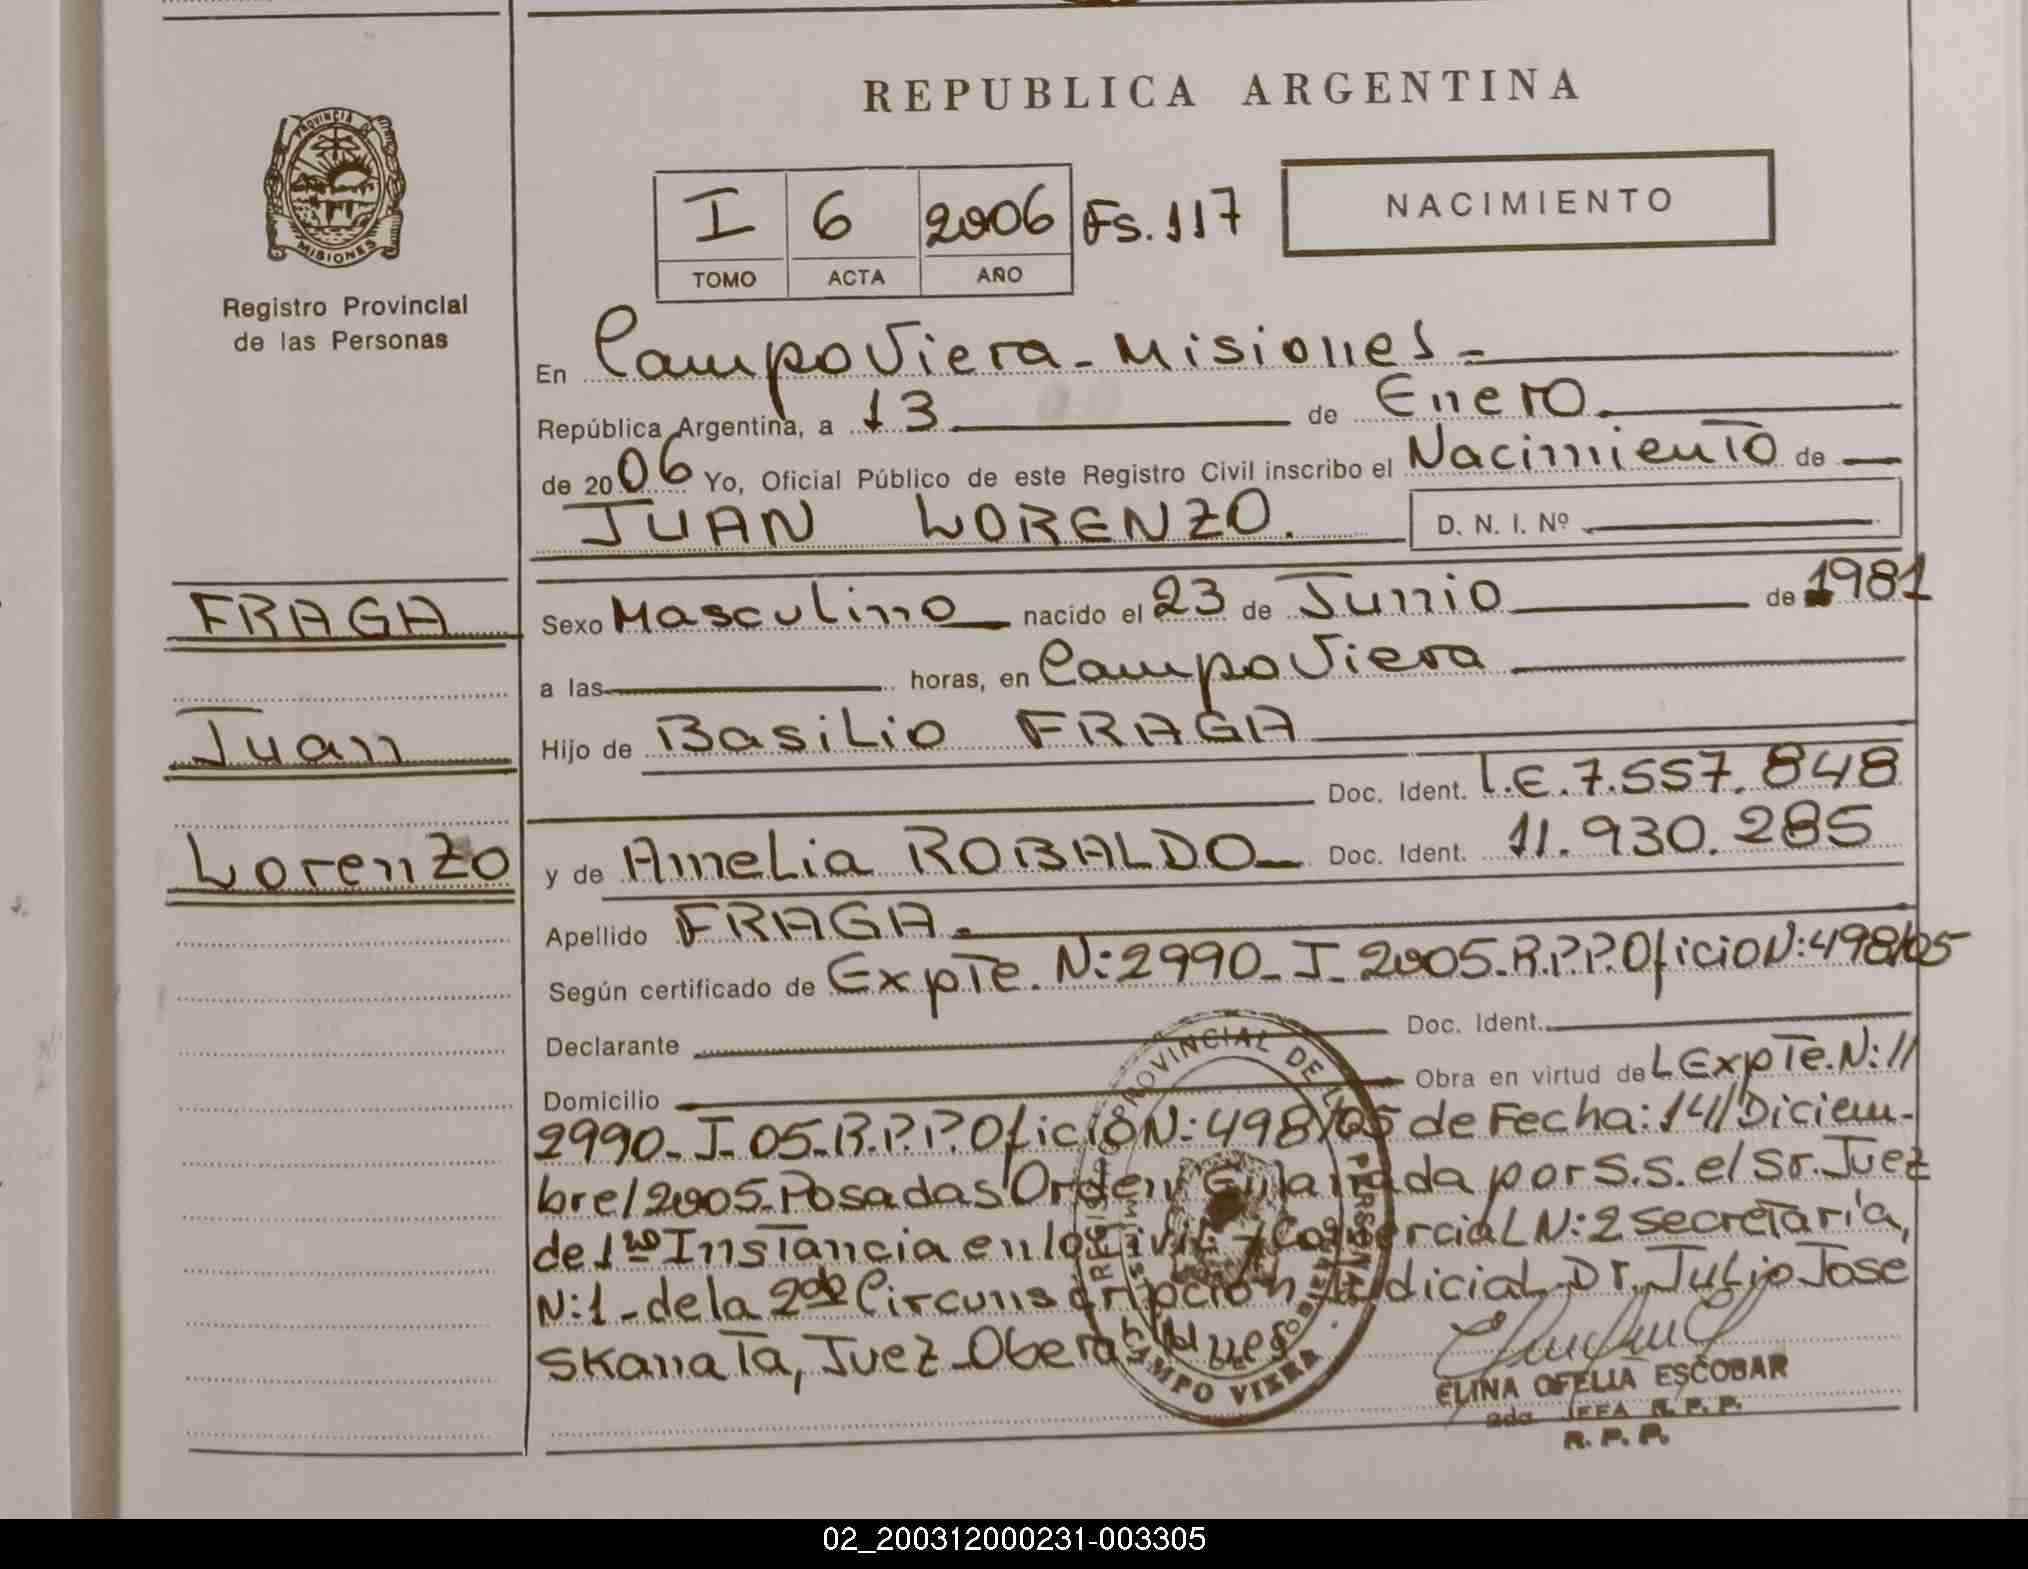 REPUBLICA ARGENTINA
PROVINCIA DE
MISIONES
Registro Provincial
de las Personas
I 6 2006 Fs. 117
TOMO ACTA AÑO
NACIMIENTO
En Campo Viera - Misiones -
República Argentina, a 13 de Enero
de 2006 Yo, Oficial Público de este Registro Civil inscribo el Nacimiento de
JUAN LORENZO. D. N. I. Nº
FRAGA
Juan
Lorenzo
Sexo Masculino nacido el 23 de Junio de 1981
a las horas, en Campo Viera
Hijo de Basilio FRAGA
Doc. Ident. L.E. 7.557.848
y de Amelia ROBALDO Doc. Ident. 11.930.285
Apellido FRAGA.
Según certificado de Expte. N:2990_I_2005_R.P.P. Oficio N:498/05
Declarante Doc. Ident.
Domicilio Obra en virtud deL Expte. N://
2990_I_05_R.P.P. Oficio N:498/05 de Fecha: 14/Diciem-
bre/2005_Posadas Orden Emanada por S.S. el Sr. Juez
de 1ra Instancia en lo Civil y Comercial N:2 secretaria,
N:1_de la 2da Circunscripción Judicial_Dr. Julio Jose
Skanata, Juez_Obera
REGISTRO PROVINCIAL DE LAS PERSONAS
CAMPO VIERA
ELINA OFELIA ESCOBAR
R. P. P.
R. P. P.
02_200312000231-003305